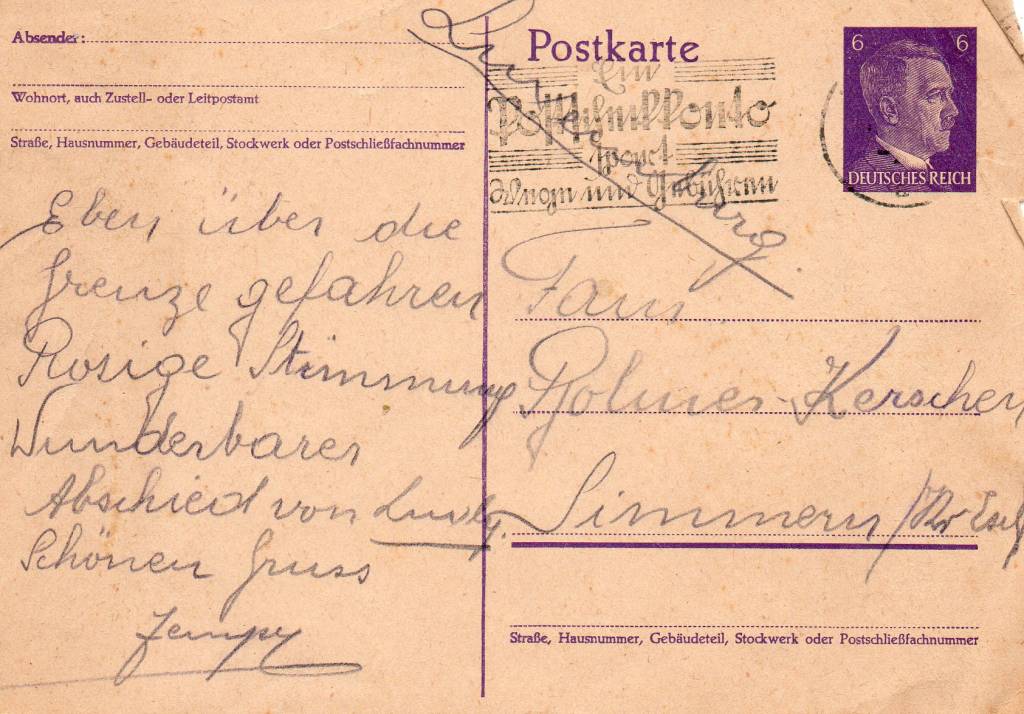 Absender:
Wohnort, auch Zustell- oder Leitpostamt
Straße, Hausnummer, Gebäudeteil, Stockwerk oder Postschließfachnummer
Eben über die
Grenze gefahren
Rosige Stimmung
Wunderbarer
Abschied von Luxbg.
Schönen Gruss
Jempy
Luxemburg
Postkarte
Ein
Postscheckkonto
spart
Wege und Gebühren
6 6
DEUTSCHES REICH
Fam.
Kerschen
Simmern /Kr
Straße, Hausnummer, Gebäudeteil, Stockwerk oder Postschließfachnummer